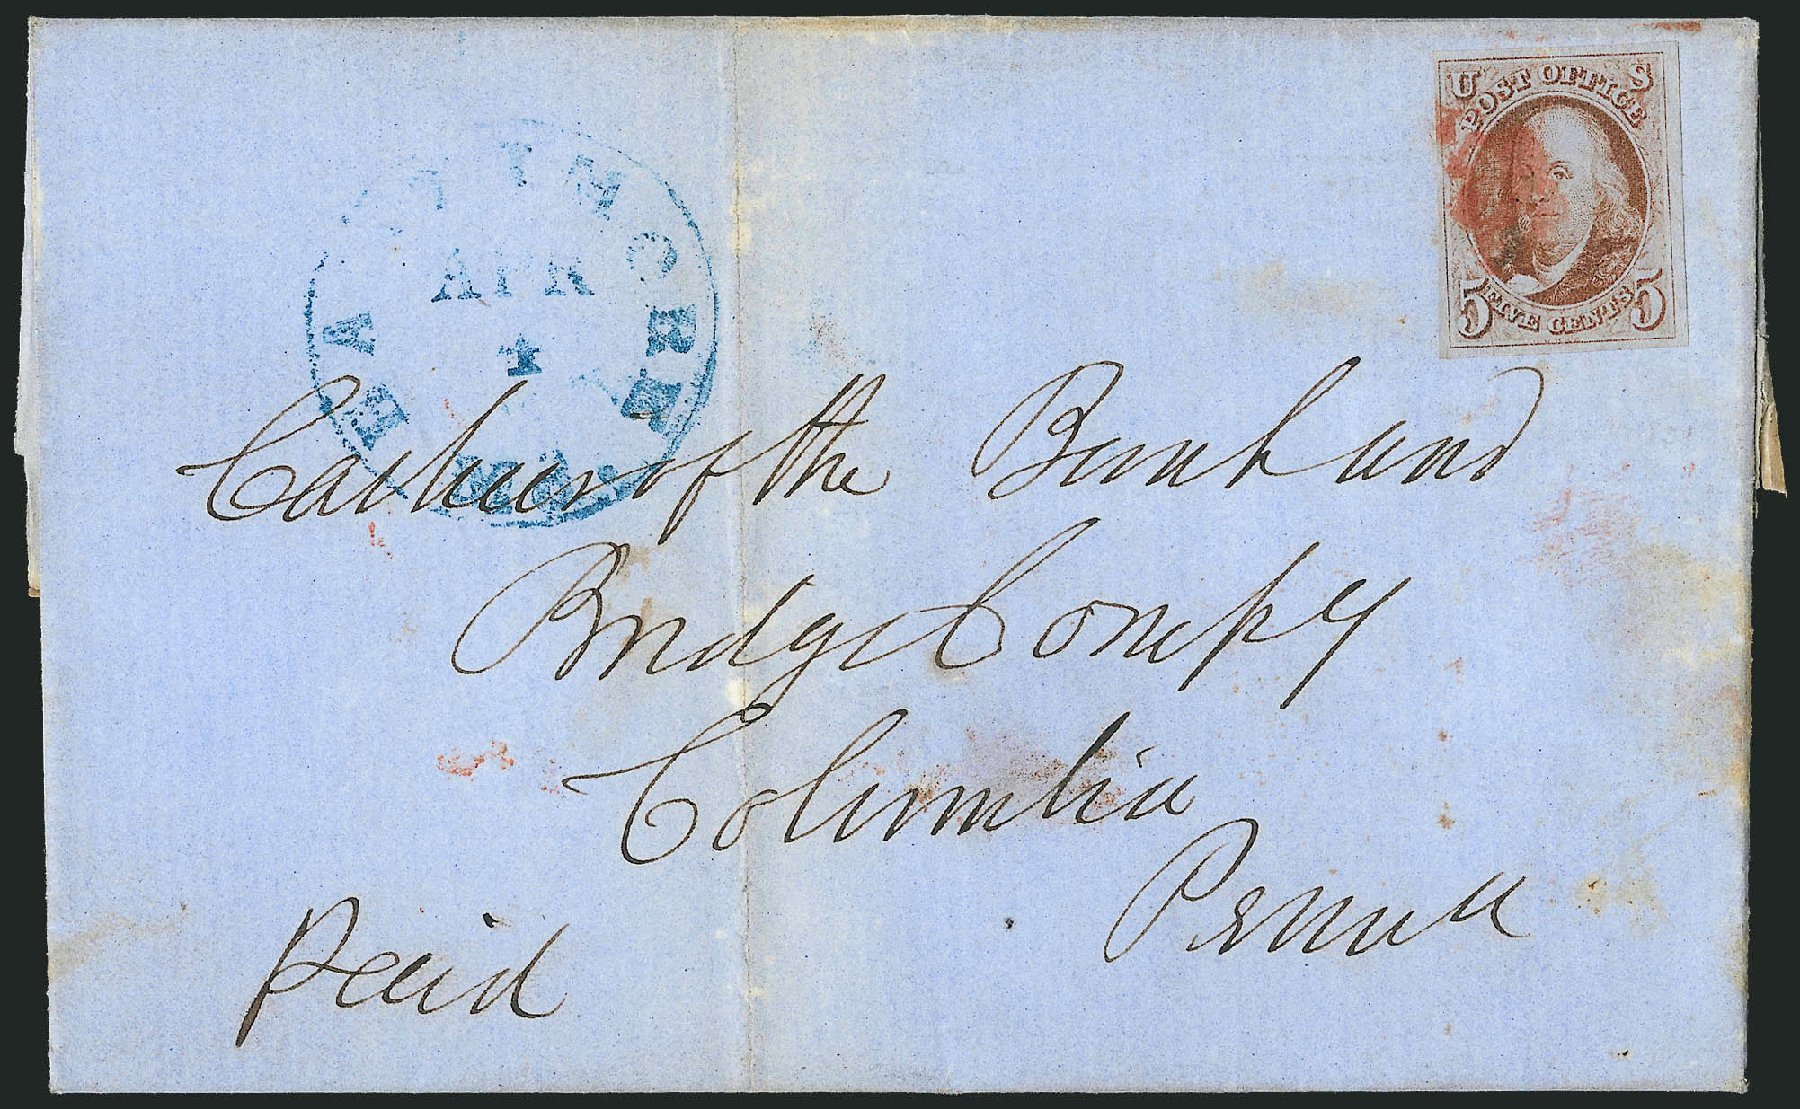 U S
POST OFFICE
5 FIVE CENTS 5
BALTIMORE
APR
4
Md.
Cashier of the Bank and
Bridge Compy
Columbia
Penna
Paid